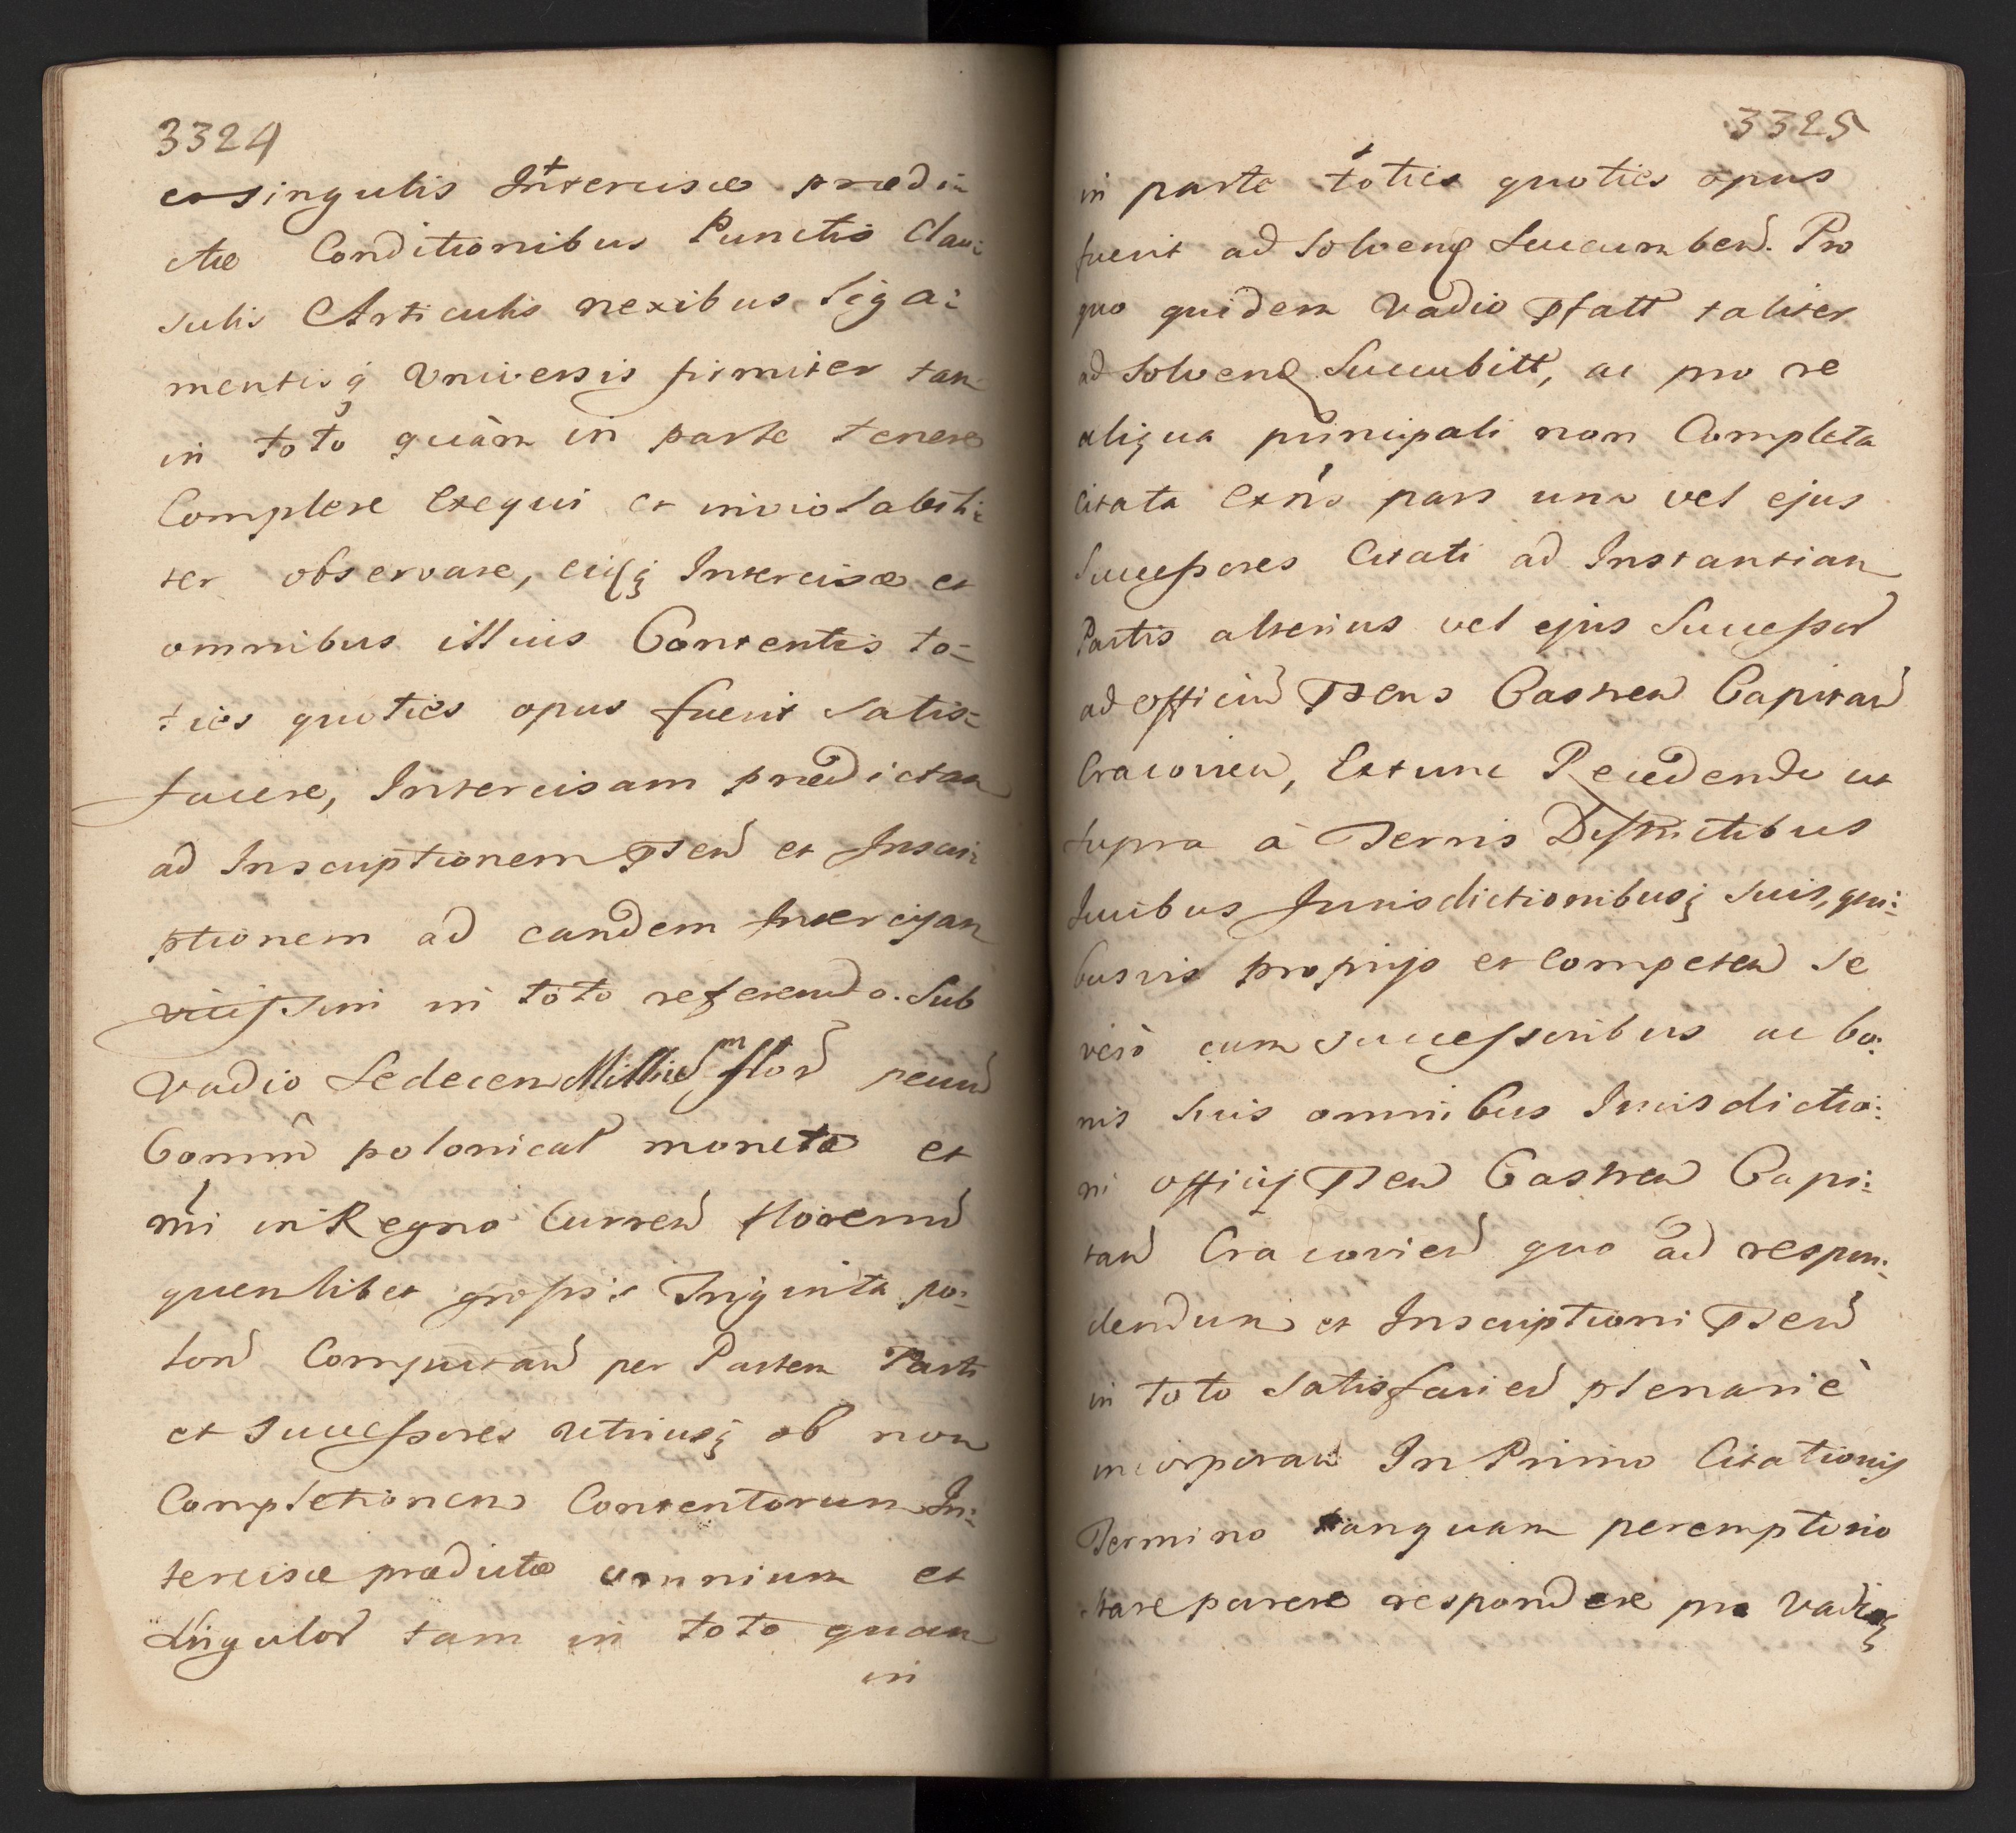 3324
et singulis Intercisæ prædi:
ctæ Conditionibus Punctis Clau:
sulis Articulis nexibus Liga:
mentisq Universis firmiter tam
in toto quàm in parte tenere
Complere Exequi et inviolabili:
ter observare, eiusq Intercisæ et
omnibus illius Contentis to=
ties quoties opus fuerit satis=
facere, Intercisam prædictam
ad Inscriptionem Psen et Inscri:
ptionem ad eandem Intercisam
vicissim in toto referendo. Sub
Vadio Sedecem Millium flor pecun
Commun polonical monetæ et
nri in Regno Curren florenum
quemlibet grossis Triginta po:
lon Computan per Partem Parti
et Successores utriusq ob non
Completionem Contentorum In:
tercisæ prædictæ omnium et
singulor tam in toto quam
in
3325
in parte toties quoties opus
fuerit ad solvend Succumben. Pro
quo quidem Vadio Pfatt taliter
ad solvend Succubitt, ac pro re
aliqua principali non Completa
Citata Extns pars una vel ejus
Successores Citati ad Instantiam
Partis alterius vel ejus Successor
ad officiu Psens Castren Capitan
Cracovien, Extunc Recedendo ut
supra à Terris Districtibus
Juribus Jurisdictionibusq suis, qui:
busvis proprijs et Competen se
verò cum successoribus ac bo:
nis suis omnibus Jurisdictio:
ni officij Psen Castren Capi:
tan Cracovien quo ad respon:
dendum et Inscriptioni Psen
in toto satisfacien plenariè
incorporan In Primo Citationis
Termino tanquam peremptorio
stare parere respondere pro Vadioq